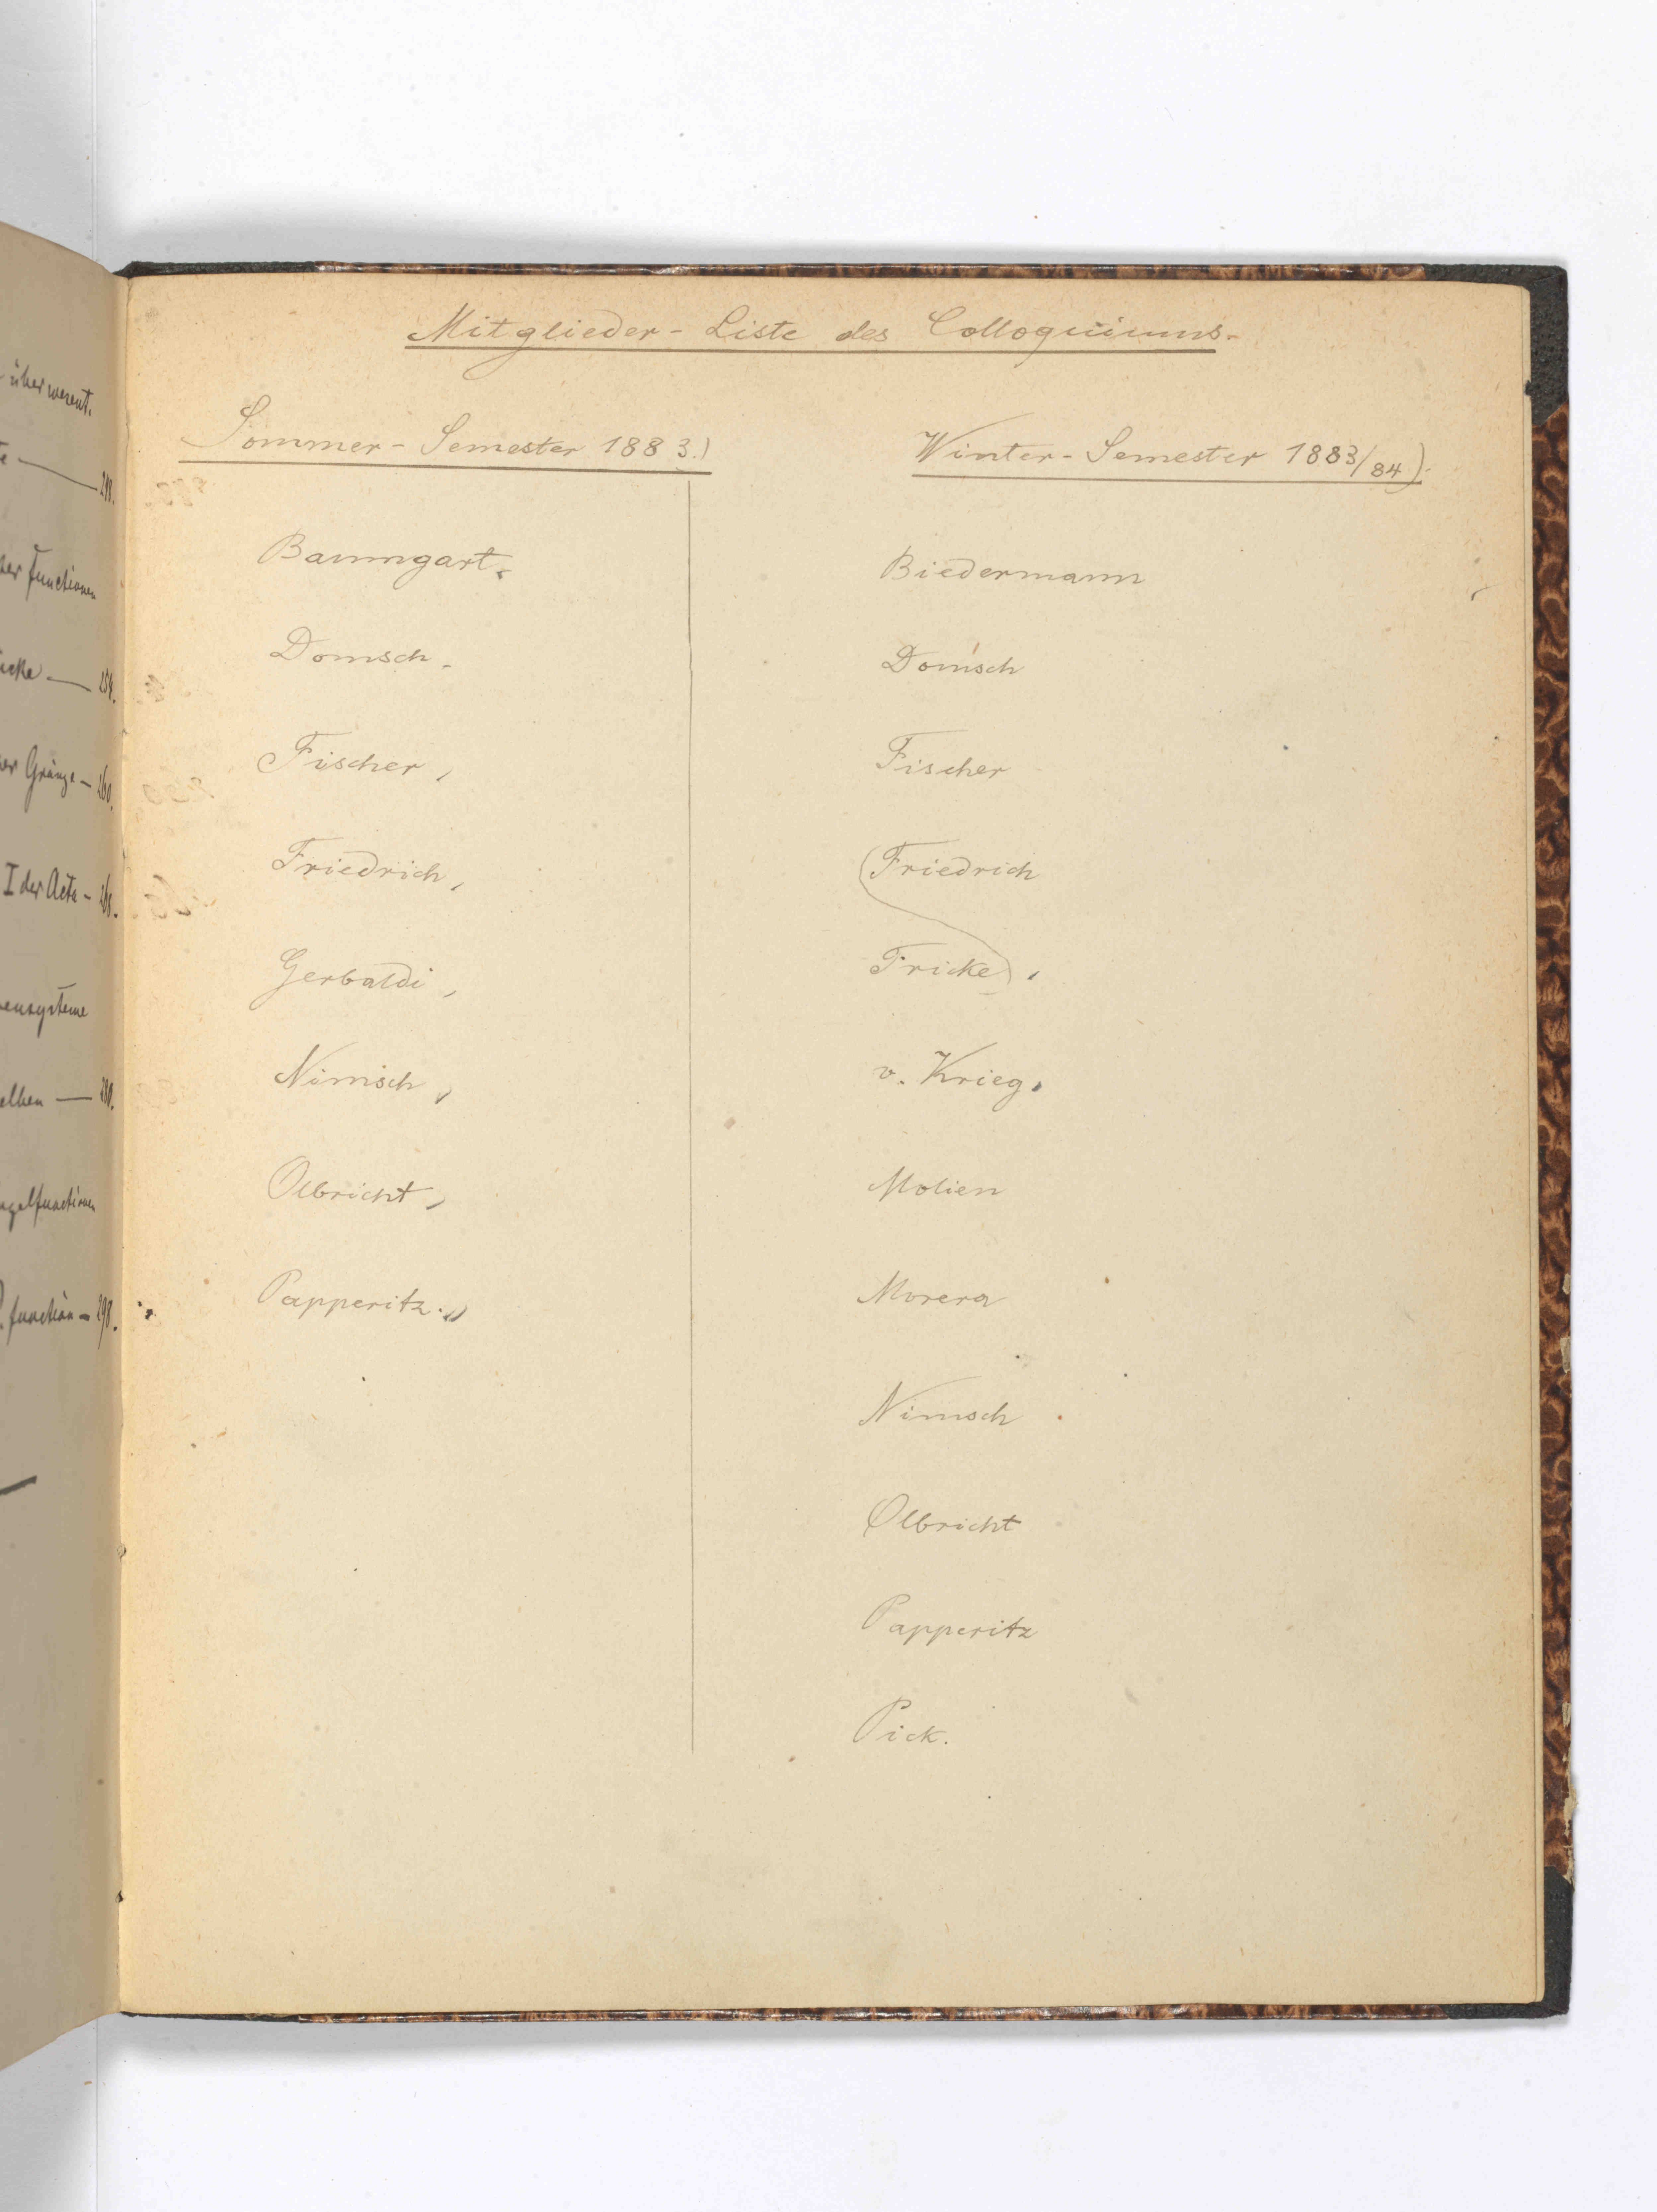 über
218.
Functionen
254.
Gränze - 260.
I der Acta - 268.
280.
function - 298.
Mitglieder - Liste des Colloquiums.
Sommer - Semester 1883.)
Baumgart.
Domsch.
Fischer,
Friedrich,
Gerbaldi,
Nimsch,
Olbricht,
Papperitz.,
Winter - Semester 1883/84).
Biedermann
Domsch
Fischer
(Friedrich
Fricke),
v. Krieg.
Molien
Morera
Nimsch
Olbricht
Papperitz
Pick.